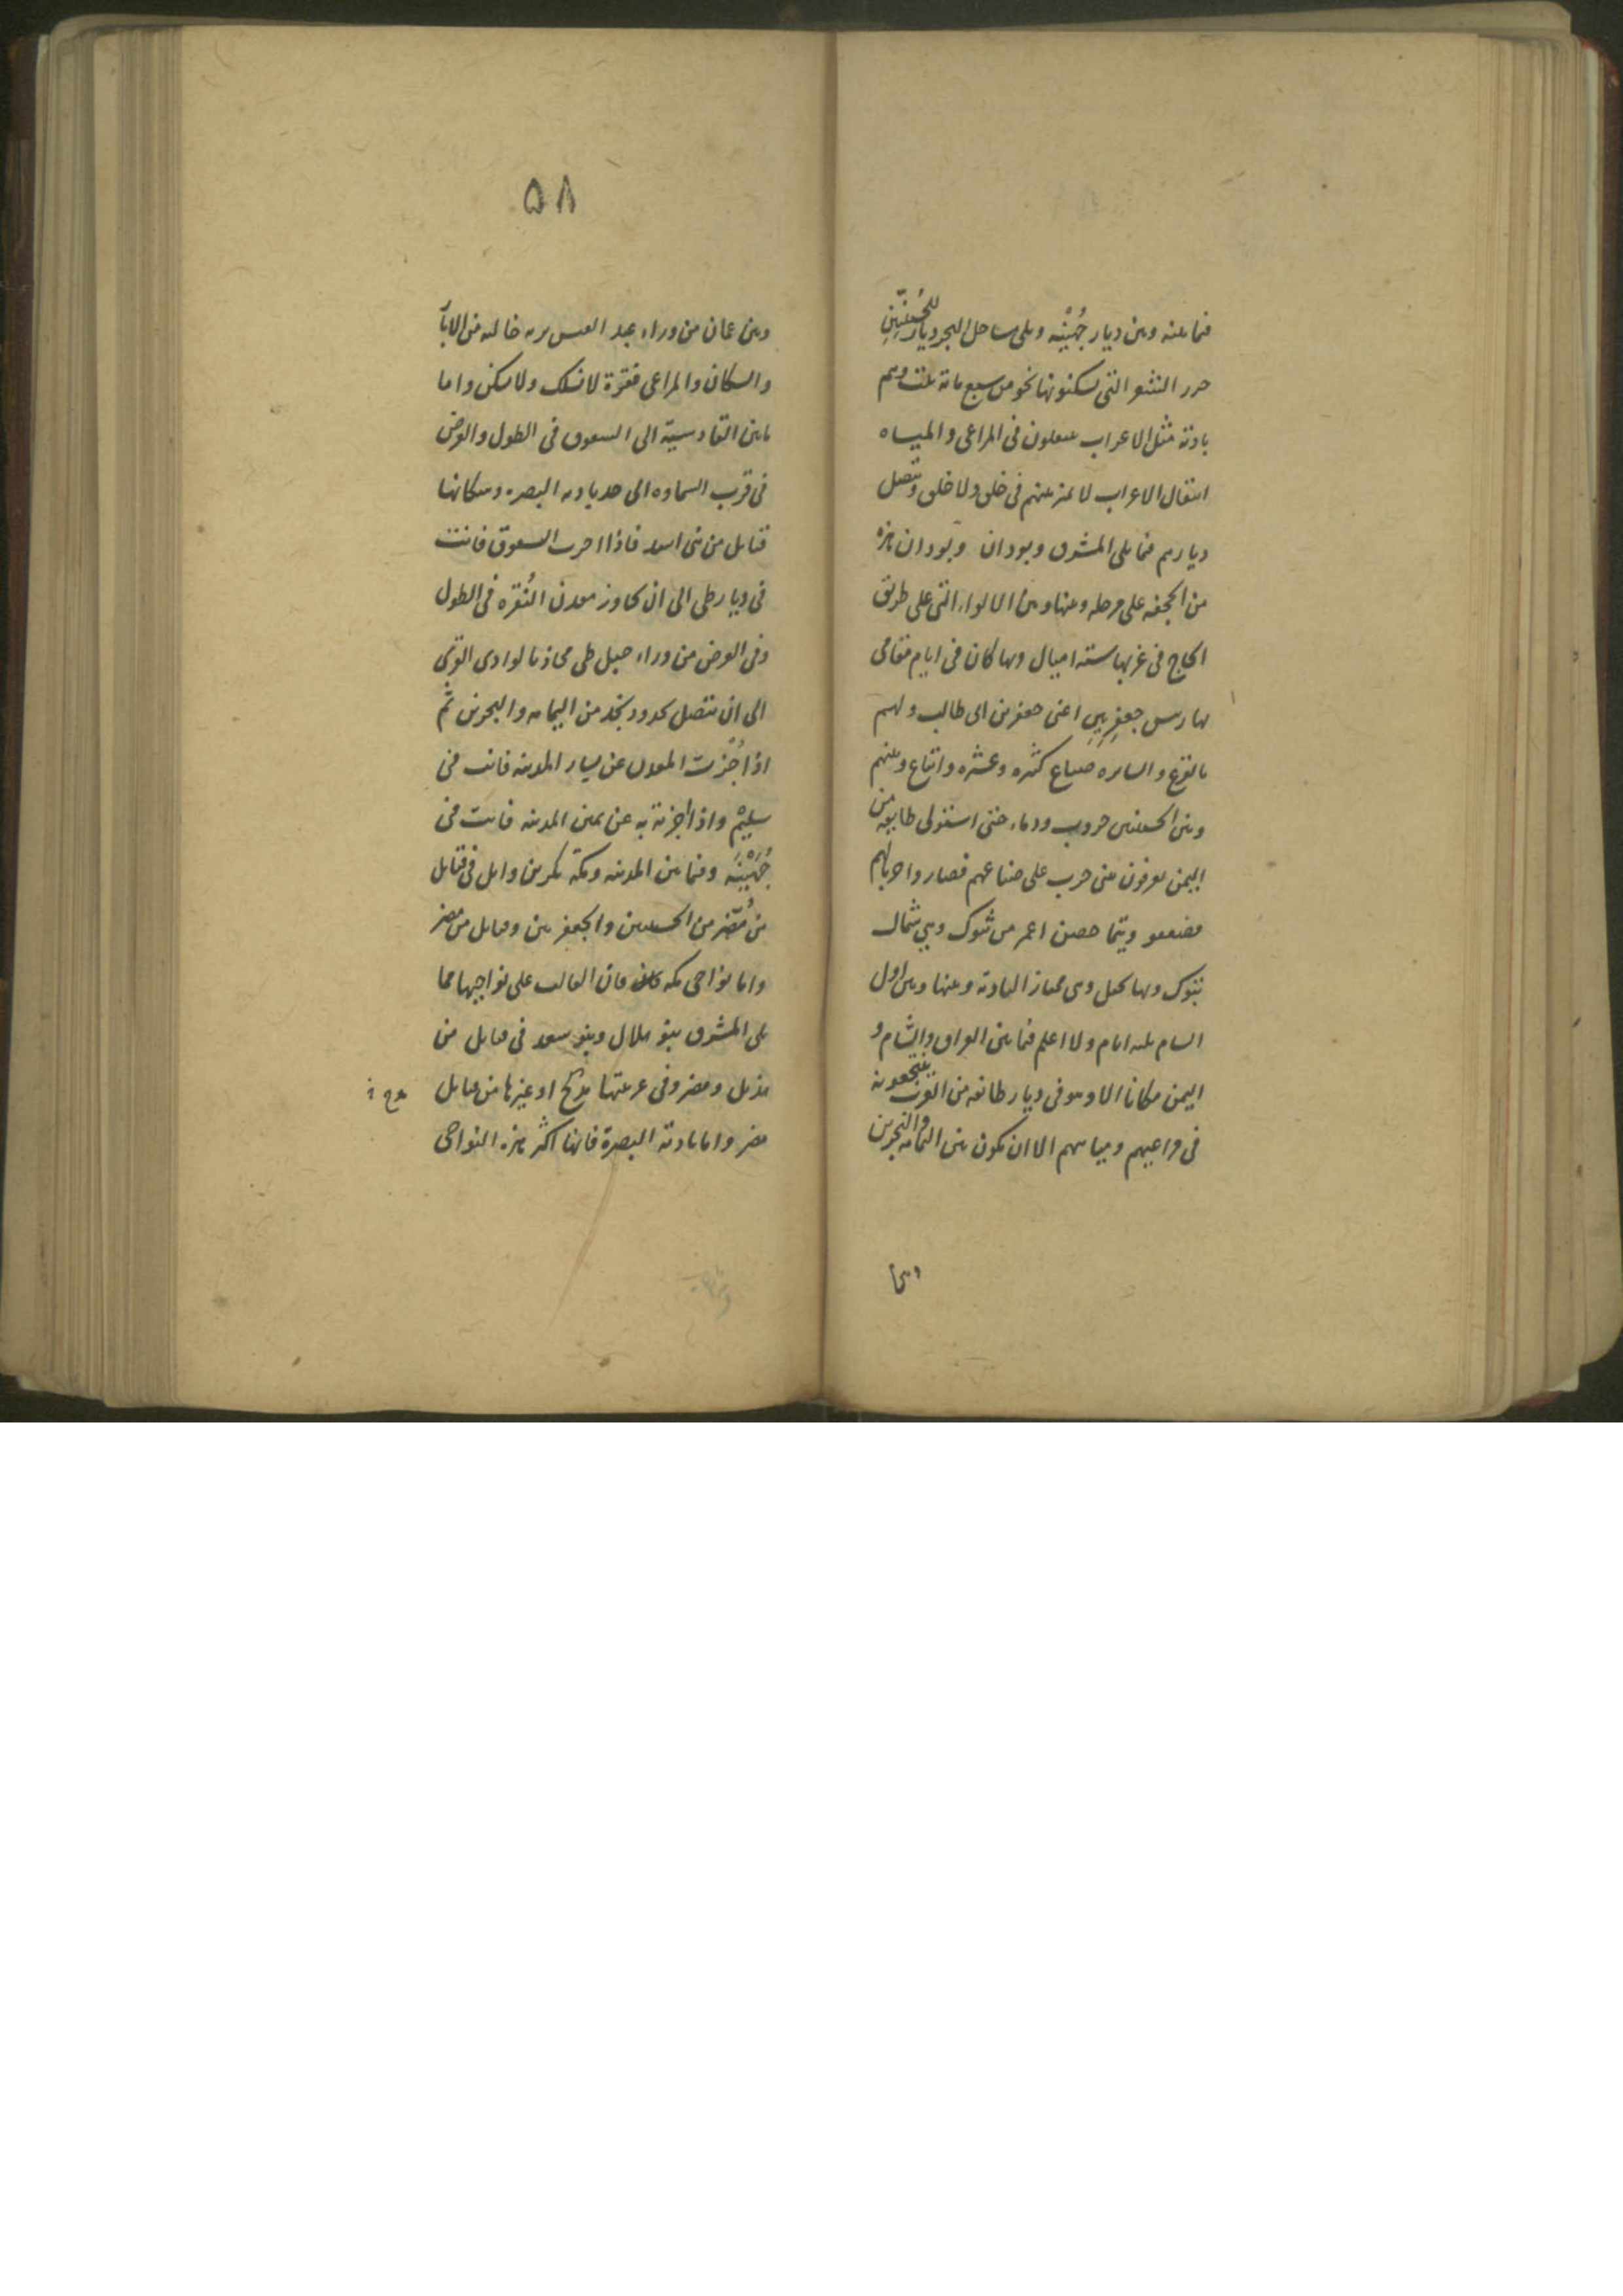 فيما بينه وبين ديار جُهَيْنَه ويلى ساحل البحر ديار للحُسَنِيّينِ
حزر الشعر التى يسكنونها نحو من سبع مائة بيت وهم
بادية مثل الاعراب ينتقلون فى المراعى والمياه
انتقال الاعراب لا تميز بينهم فى خلق ولا خلق وتتصل
ديارهم فيما يلى المشرق وبودان وبودان هذه
من الجحفه على مرحله وبينها وبين الابواء التى على طريق
الحاج فى غربها ستة اميال وبها كان فى ايام مقامى
بها رئيس جعفريين اعنى جعفر بن ابى طالب ولهم
بالفرع والسايره ضياع كثيره وعشيره واتباع وبينهم
وبين الحسنيين حروب ودماء حتى استولى طايفه من
اليمن يعرفون ببنى حرب على ضياعهم فصاروا حربا لهم
فضعفو وتيما حصن اعمر من تبوك وهى شمال
تبوك وبها نخل وهى ممتاز البادية وبينها وبين اول
الشام ثلثه ايام ولا اعلم فيما بين العراق والشام و
اليمن مكانا الا وهو فى ديار طائفه من العرب ينتجعونه
فى مراعيهم ومياههم الا ان يكون بين اليمامه والبحرين
۵۸
وبين عمان من وراء عبد القيس بريه خاليه من الآبار
والسكان والمراعى مقفرة لا تسلك ولا تسكن واما
ما بين القادسية الى الشقوق فى الطول والعرض
فى قرب السماوه الى حد باديه البصره وسكانها
قبايل من بنى اسد فاذا اجزت الشقوق فانت
فى ديار طى الى ان تجاوز معدن النُقره فى الطول
وفى العرض من وراء جبل طى محاذيا لوادى القرى
الى ان تتصل بحدود نجد من اليمامه والبحرين ثم
اذا جُزت المعدن عن يسار المدينه فانت فى
سليم واذا جزته عن يمين المدينه فانت فى
جُهَيْنَه وفيما بين المدينه ومكة بكر بن وايل فى قبايل
من مُضر من الحسنيين والجعفريين وقبايل من مضر
واما نواحى مكه فان الغالب على نواحيها مما
يلى المشرق بنو هلال وبنو سعد فى قبايل من
هذيل ومضر وفى غربيها مدلج او غيرها من قبايل
مضر واما بادية البصرة فانها اكثر هذه النواحى